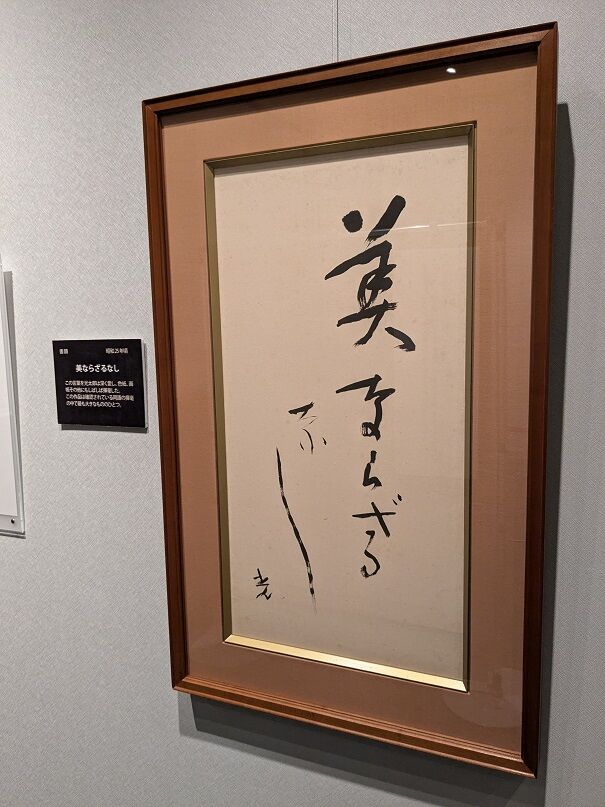 美ならざる
なし
光
書額 昭和25年頃
美ならざるなし
この言葉を光太郎は深く愛し、色紙、画
帳その他にもしばしば揮毫した。
この作品は確認されている同語の揮毫
の中で最も大きなもののひとつ。